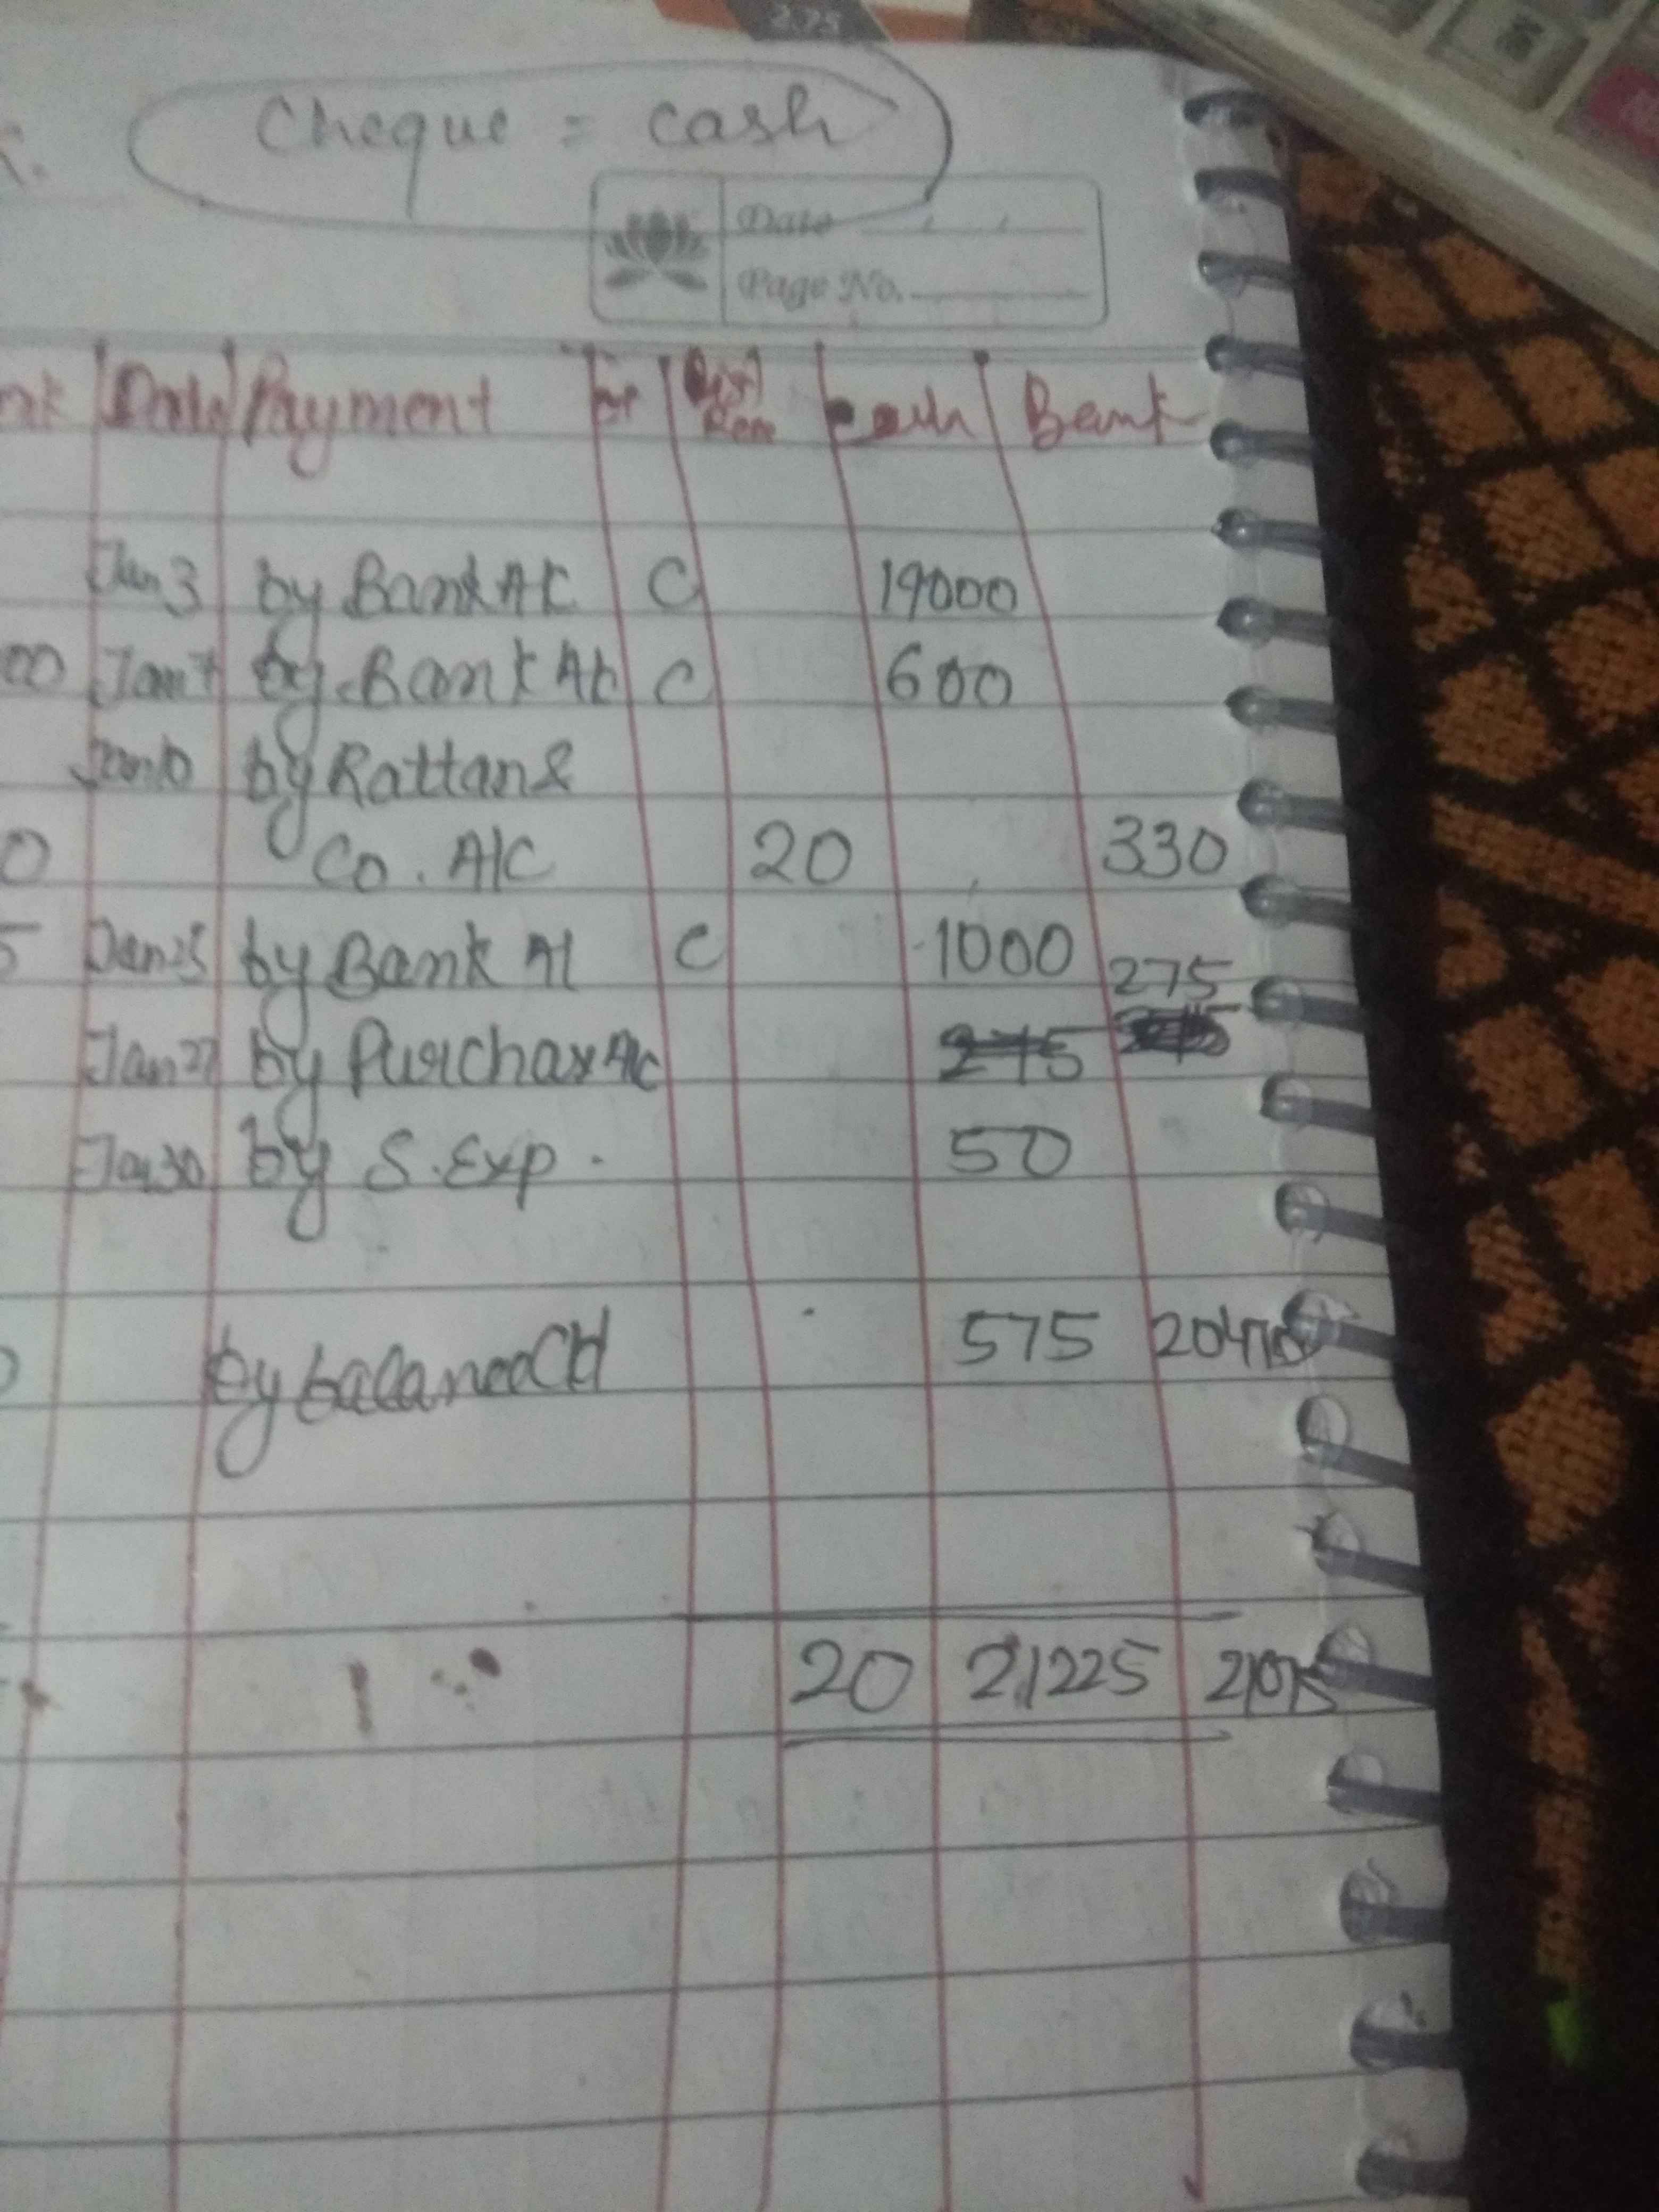 2.75
Cheque = cash
Date
Page No.
Date Payment Cash Bank
Jan 3 by Bank A/C C 19000
00 Jan 7 by Bank A/c C 600
Jan 10 by Rattan &
0 Co. A/C 20 330
5 Jan 25 by Bank A/ C 1000 275
Jan 27 by Purchase A/c 275
Jan 30 by S. Exp. 50
by balance C/d 575 20470
20 21225 21075